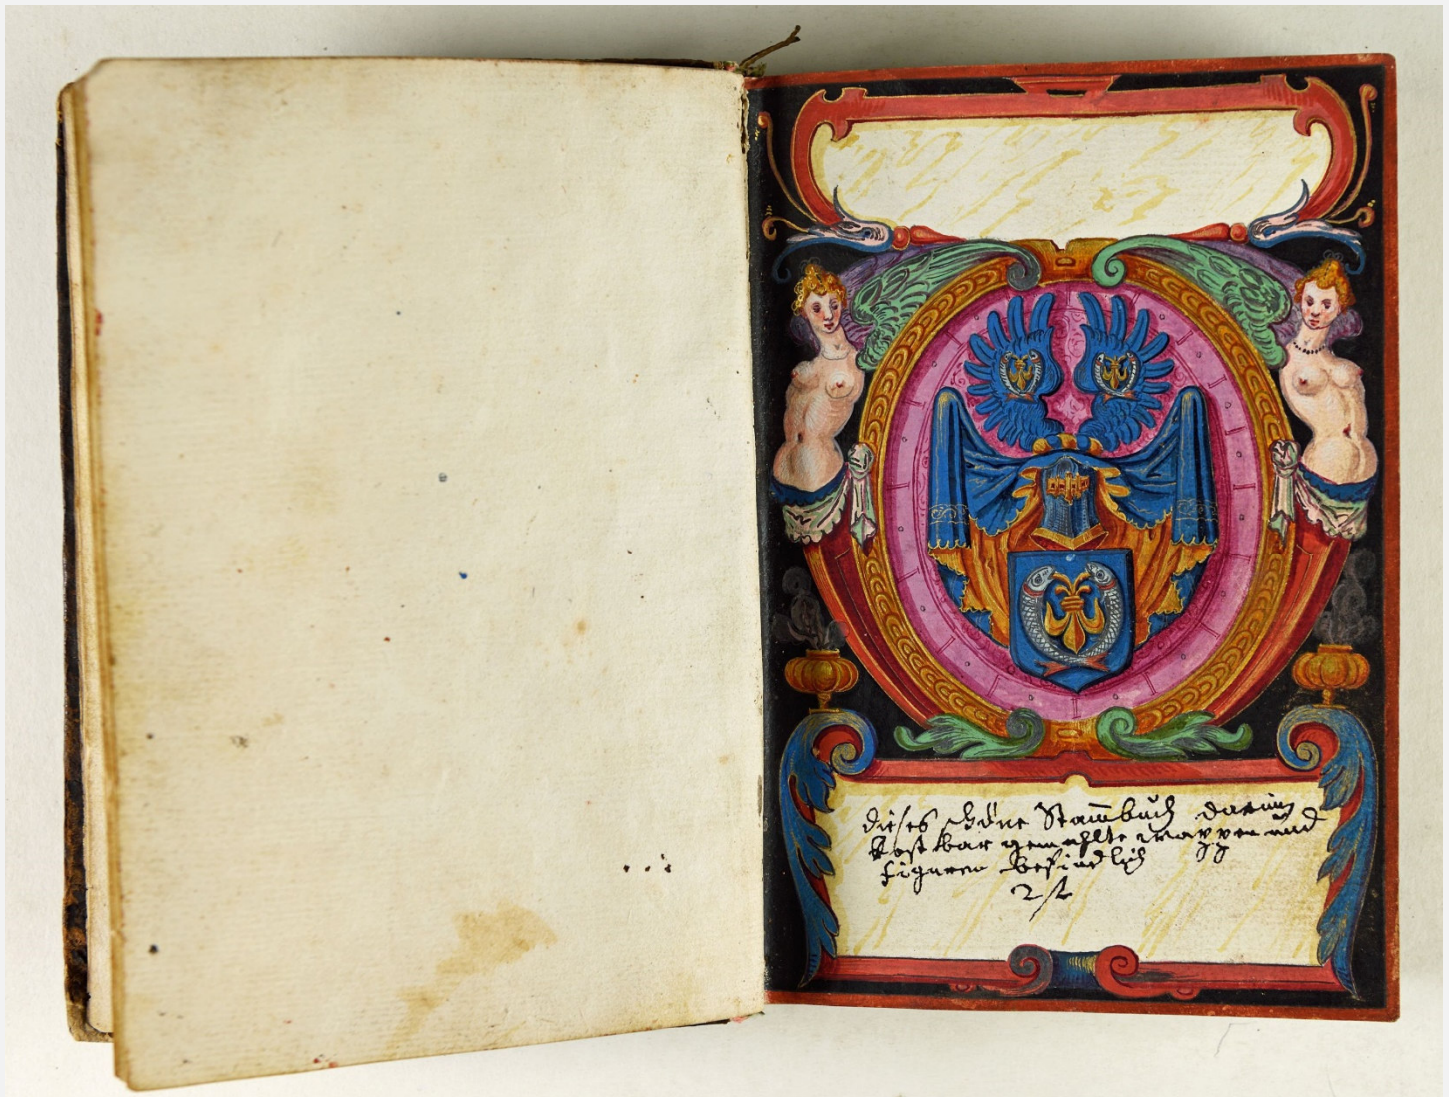 dieses schöne Stam̅buch darinn
kostbar gemahlte wappen und
figuren befindlich